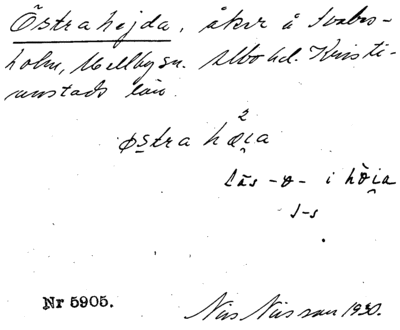 Östrahejda, åker å Svabes-
holm, Mellby sn. Albo hd. Kristi-
anstads län.
østra hœi̯a
2
läs -ò- i hòi̯a
J-s
Nr 5905.
Nils Nilsson 1930.